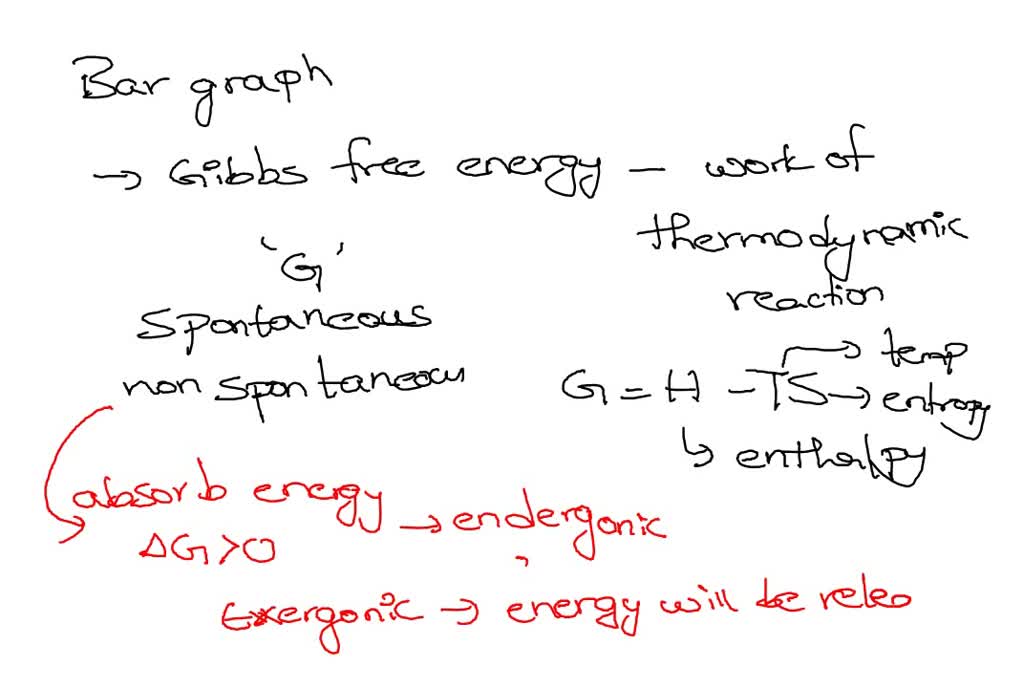 Bar graph
→ Gibbs free energy – work of
thermodynamic
reaction
'G'
spontaneous
non spontaneous
G = H – TS → entropy
→ temp
↳ enthalpy
absorb energy → endergonic
ΔG > 0
Exergonic → energy will be relea